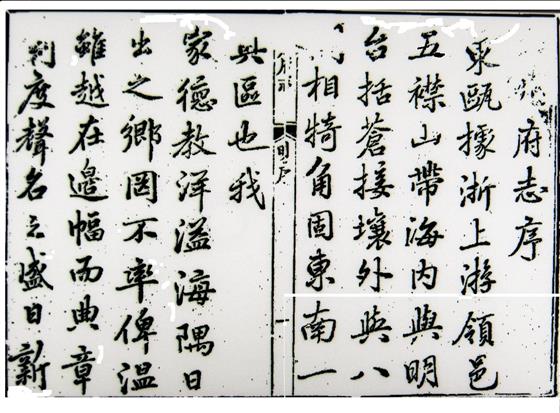 府志序
東甌據浙上游領邑
五襟山帶海內與明
台括蒼接壤外與八
相犄角固東南一
明序
區也我
家德教洋溢海隅日
出之鄉罔不率俾溫
雖越在邊幅而典章
制度聲名之盛日新